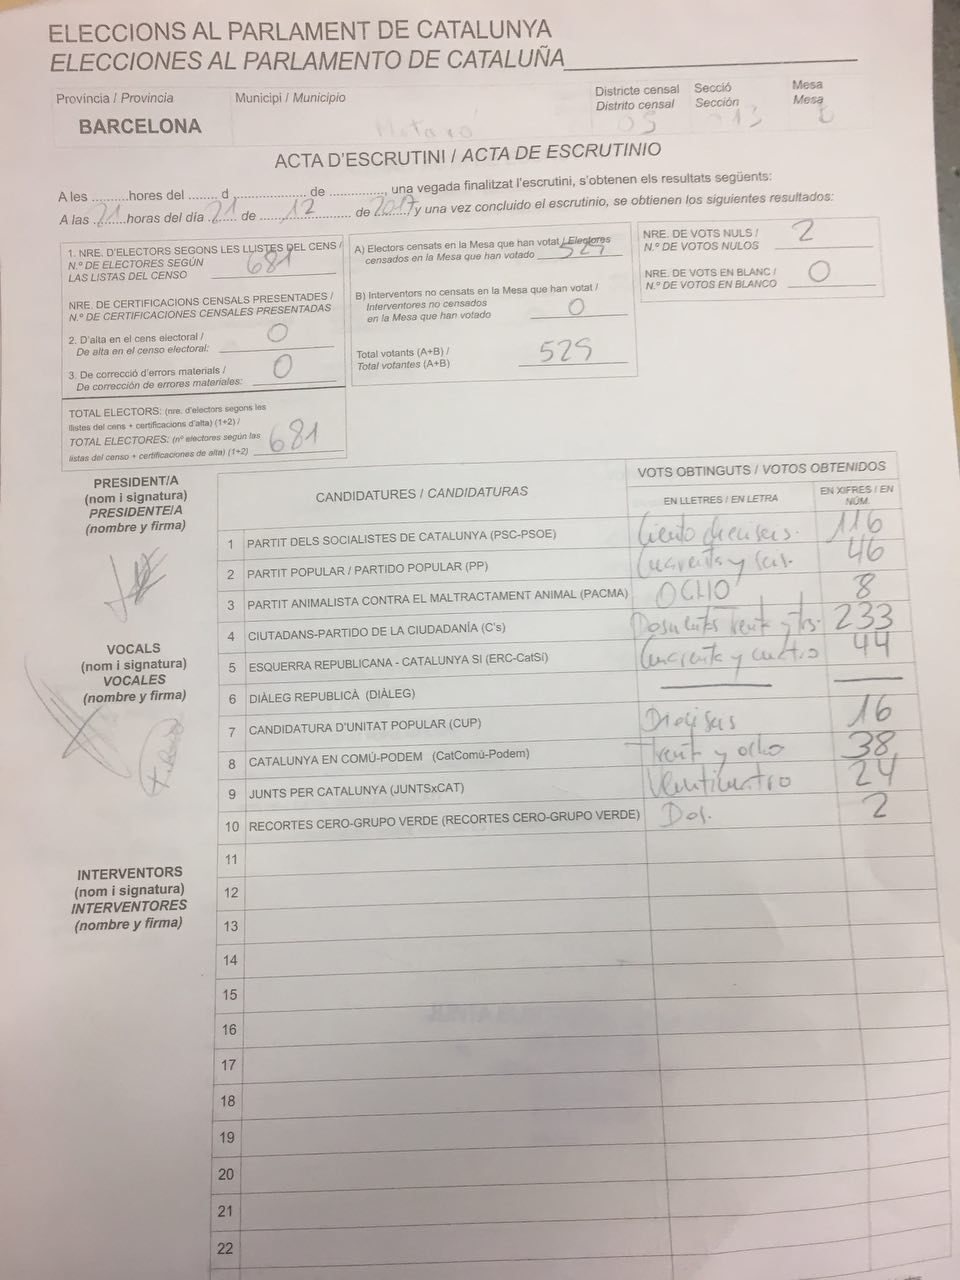 ELECCIONS AL PARLAMENT DE CATALUNYA
ELECCIONES AL PARLAMENTO DE CATALUÑA
Província / Provincia
BARCELONA
Municipi / Municipio
Mataró
Districte censal
Distrito censal
03
Secció
Sección
013
Mesa
Mesa
ACTA D'ESCRUTINI / ACTA DE ESCRUTINIO
A les ......... hores del ....... d ................... de .............., una vegada finalitzat l'escrutini, s'obtenen els resultats següents:
A las 21 horas del día 21 de 12 de 2017 y una vez concluido el escrutinio, se obtienen los siguientes resultados:
1. NRE. D'ELECTORS SEGONS LES LLISTES DEL CENS /
N.º DE ELECTORES SEGÚN
LAS LISTAS DEL CENSO 681
NRE. DE CERTIFICACIONS CENSALS PRESENTADES /
N.º DE CERTIFICACIONES CENSALES PRESENTADAS
2. D'alta en el cens electoral /
De alta en el censo electoral: 0
3. De correcció d'errors materials /
De corrección de errores materiales: 0
TOTAL ELECTORS: (nre. d'electors segons les
llistes del cens + certificacions d'alta) (1+2) /
TOTAL ELECTORES: (nº electores según las
listas del censo + certificaciones de alta) (1+2) 681
A) Electors censats en la Mesa que han votat / Electores
censados en la Mesa que han votado 529
B) Interventors no censats en la Mesa que han votat /
Interventores no censados
en la Mesa que han votado 0
Total votants (A+B) /
Total votantes (A+B) 529
NRE. DE VOTS NULS /
N.º DE VOTOS NULOS 2
NRE. DE VOTS EN BLANC /
N.º DE VOTOS EN BLANCO 0
PRESIDENT/A
(nom i signatura)
PRESIDENTE/A
(nombre y firma)
VOCALS
(nom i signatura)
VOCALES
(nombre y firma)
INTERVENTORS
(nom i signatura)
INTERVENTORES
(nombre y firma)
CANDIDATURES / CANDIDATURAS
VOTS OBTINGUTS / VOTOS OBTENIDOS
EN LLETRES / EN LETRA
EN XIFRES / EN
NÚM.
1 PARTIT DELS SOCIALISTES DE CATALUNYA (PSC-PSOE) Ciento dieciseis. 116
2 PARTIT POPULAR / PARTIDO POPULAR (PP) Cuarenta y seis. 46
3 PARTIT ANIMALISTA CONTRA EL MALTRACTAMENT ANIMAL (PACMA) OCHO 8
4 CIUTADANS-PARTIDO DE LA CIUDADANÍA (C's) Doscientos treinta y tres. 233
5 ESQUERRA REPUBLICANA - CATALUNYA SI (ERC-CatSí) Cuarenta y cuatro 44
6 DIÀLEG REPUBLICÀ (DIÀLEG)
7 CANDIDATURA D'UNITAT POPULAR (CUP) Dieciseis 16
8 CATALUNYA EN COMÚ-PODEM (CatComú-Podem) Treinta y ocho 38
9 JUNTS PER CATALUNYA (JUNTSxCAT) Venticuatro 24
10 RECORTES CERO-GRUPO VERDE (RECORTES CERO-GRUPO VERDE) Dos. 2
11
12
13
14
15
16
17
18
19
20
21
22